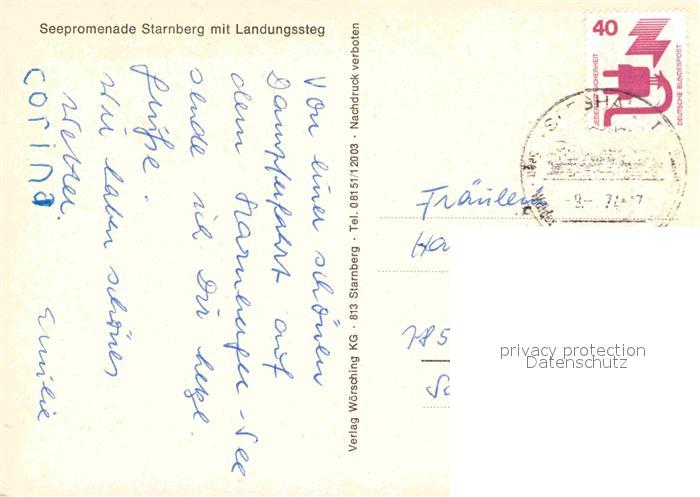 Seepromenade Starnberg mit Landungssteg
Von einer schönen
Dampferfahrt auf
dem Starnberger-See
sende ich Dir herzl.
Grüße.
Wir haben schönes
Wetter.
Emilie
corina
Verlag Wörsching KG · 813 Starnberg · Tel. 08151/12003 · Nachdruck verboten
40
JEDERZEIT SICHERHEIT
DEUTSCHE BUNDESPOST
Fräulein
Ha
785
privacy protection
Datenschutz